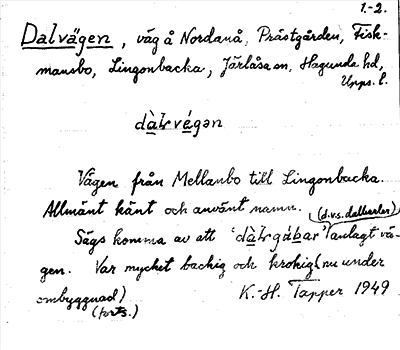 1.-2.
Dalvägen, väg å Nordanå, Prästgården, Fisk-
mansbo, Lingonbacka, Järlåsa sn, Hagunda hd,
Upps. l.
dàlvégən
Vägen från Mellanbo till Lingonbacka.
Allmänt känt och använt namn.
(d.v.s. dalkarlar)
Sägs komma av att 'dàlgábar' anlagt vä-
gen. Var mycket backig och krokig (nu under
ombyggnad)
(forts.)
K.-H. Tapper 1949